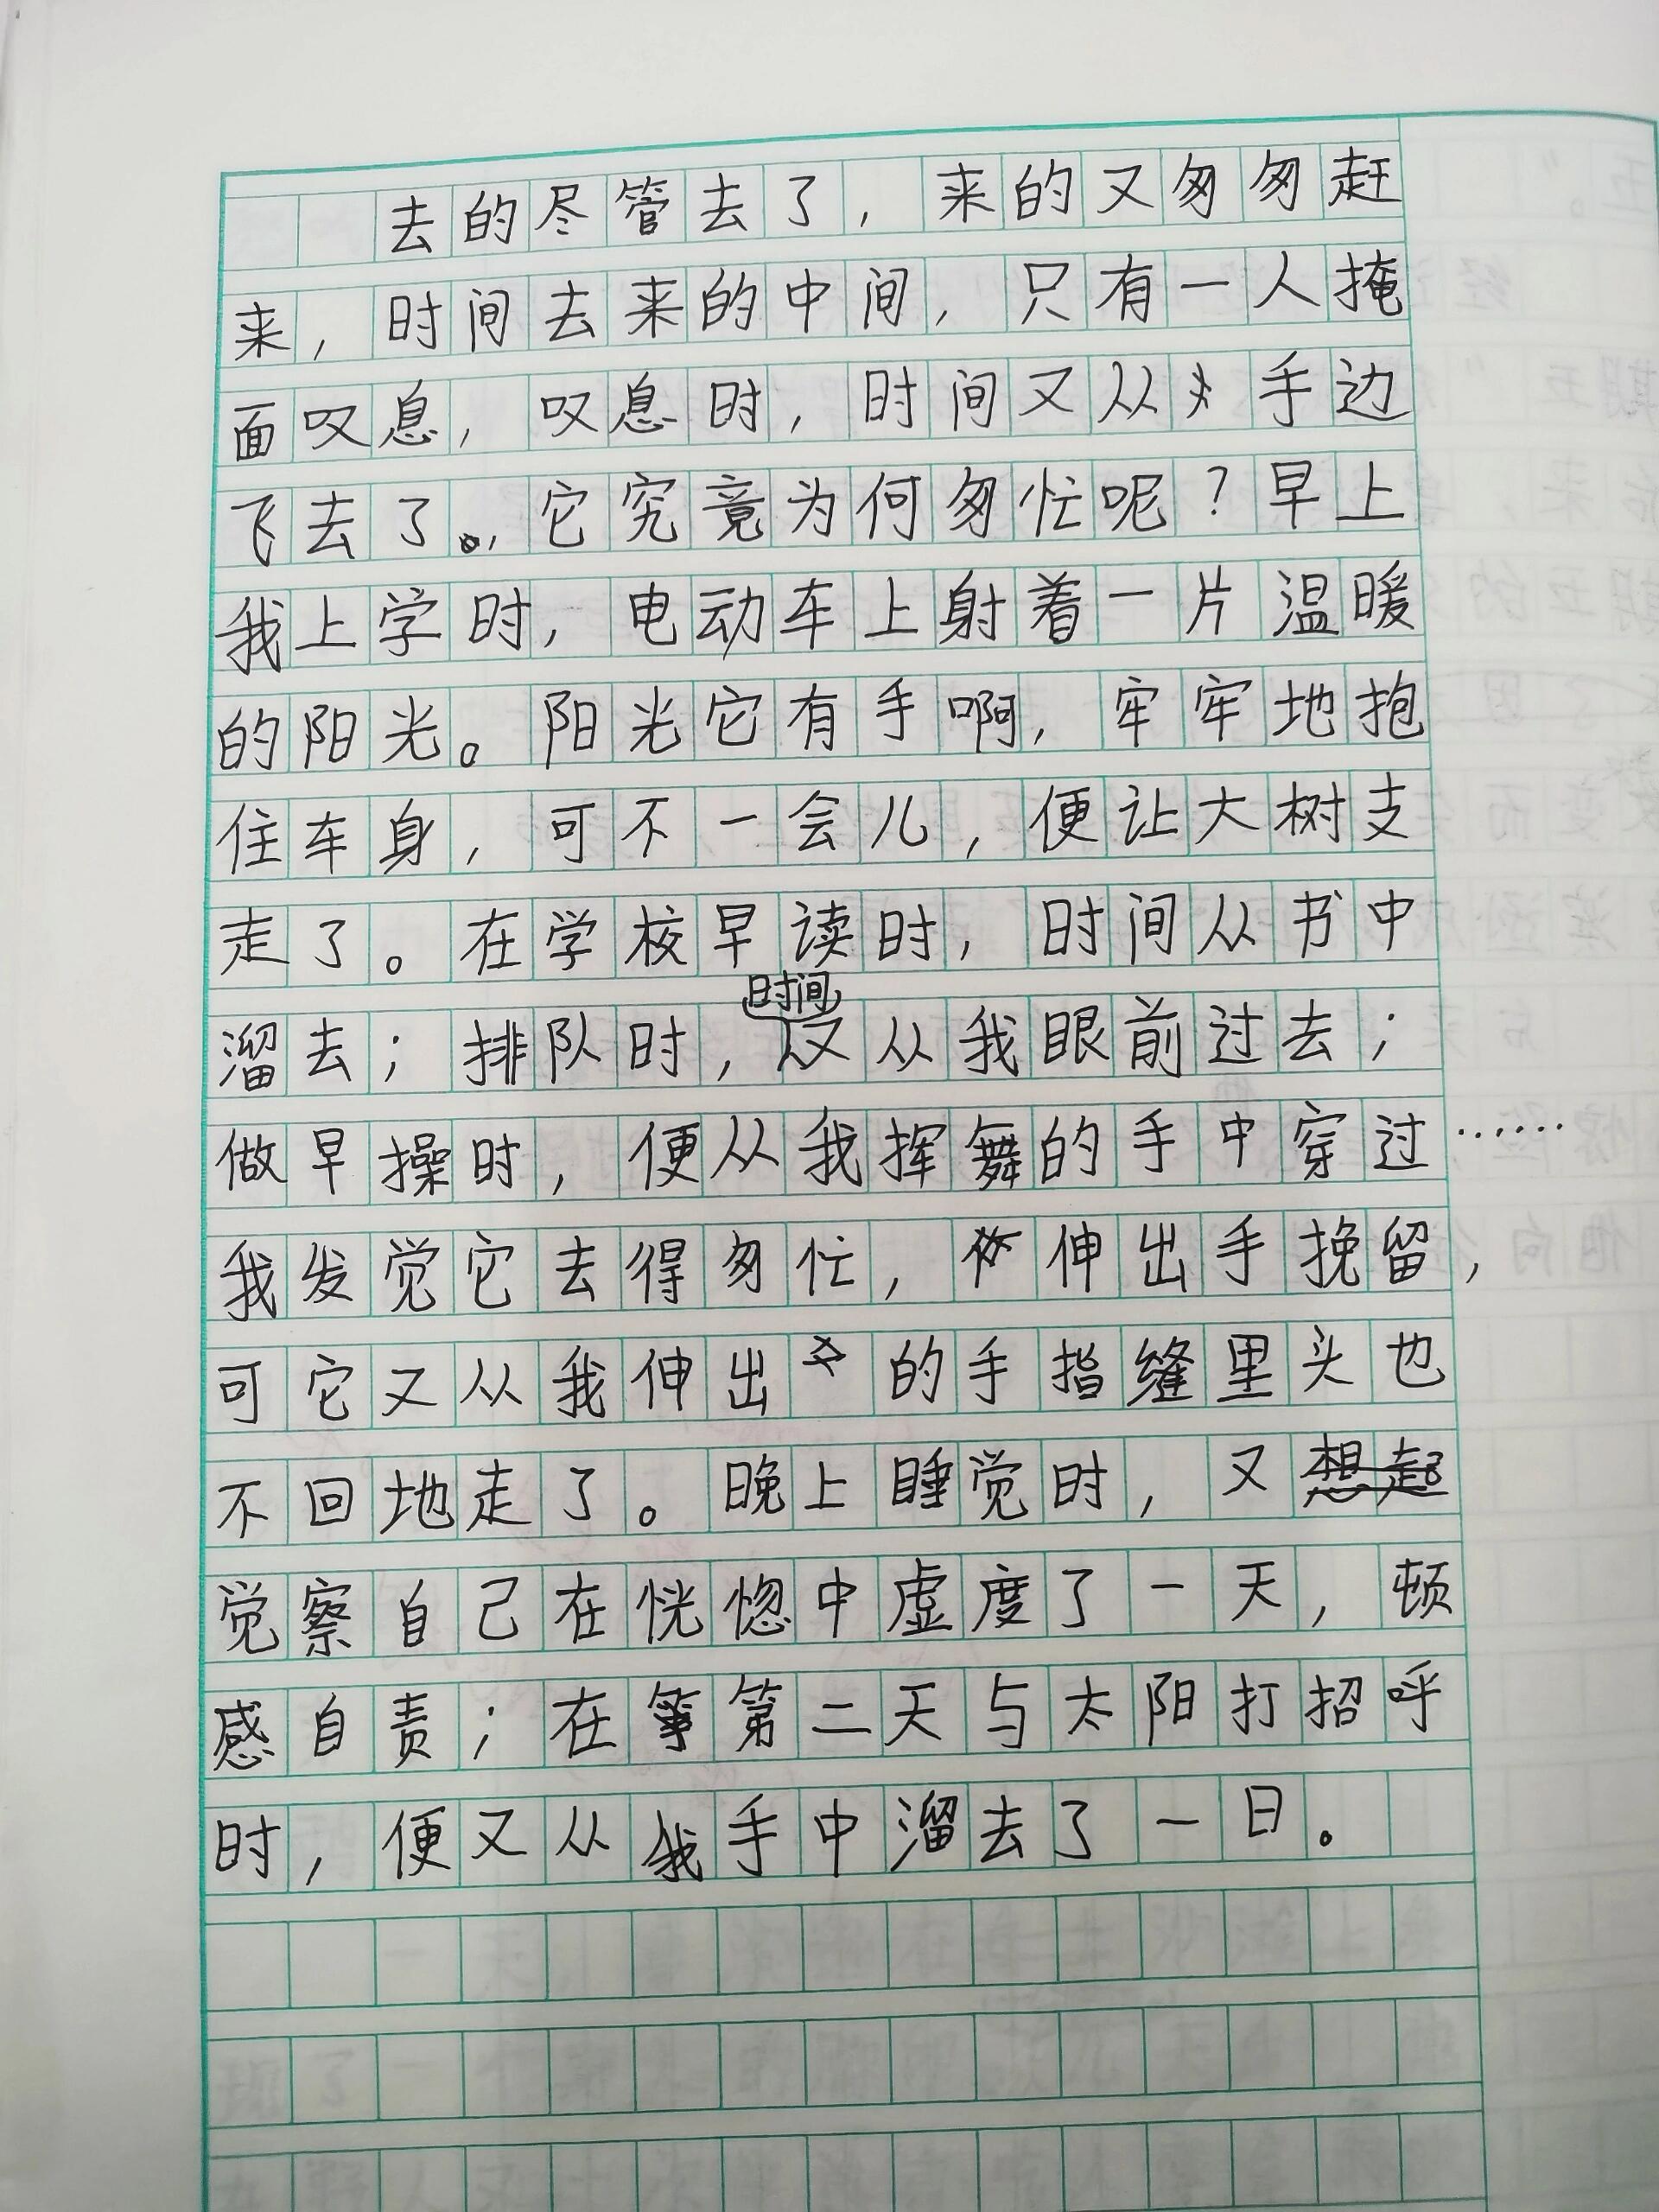 去的尽管去了，来的又匆匆赶
来，时间去来的中间，只有一人掩
面叹息，叹息时，时间又从手边
飞去了。，它究竟为何匆忙呢？早上
我上学时，电动车上射着一片温暖
的阳光。阳光它有手啊，牢牢地抱
住车身，可不一会儿，便让大树支
走了。在学校早读时，时间从书中
溜去；排队时，时间又从我眼前过去；
做早操时，便从我挥舞的手中穿过……
我发觉它去得匆忙，伸出手挽留，
可它又从我伸出的手指缝里头也
不回地走了。晚上睡觉时，又想起
觉察自己在恍惚中虚度了一天，顿
感自责；在第二天与太阳打招呼
时，便又从我手中溜去了一日。